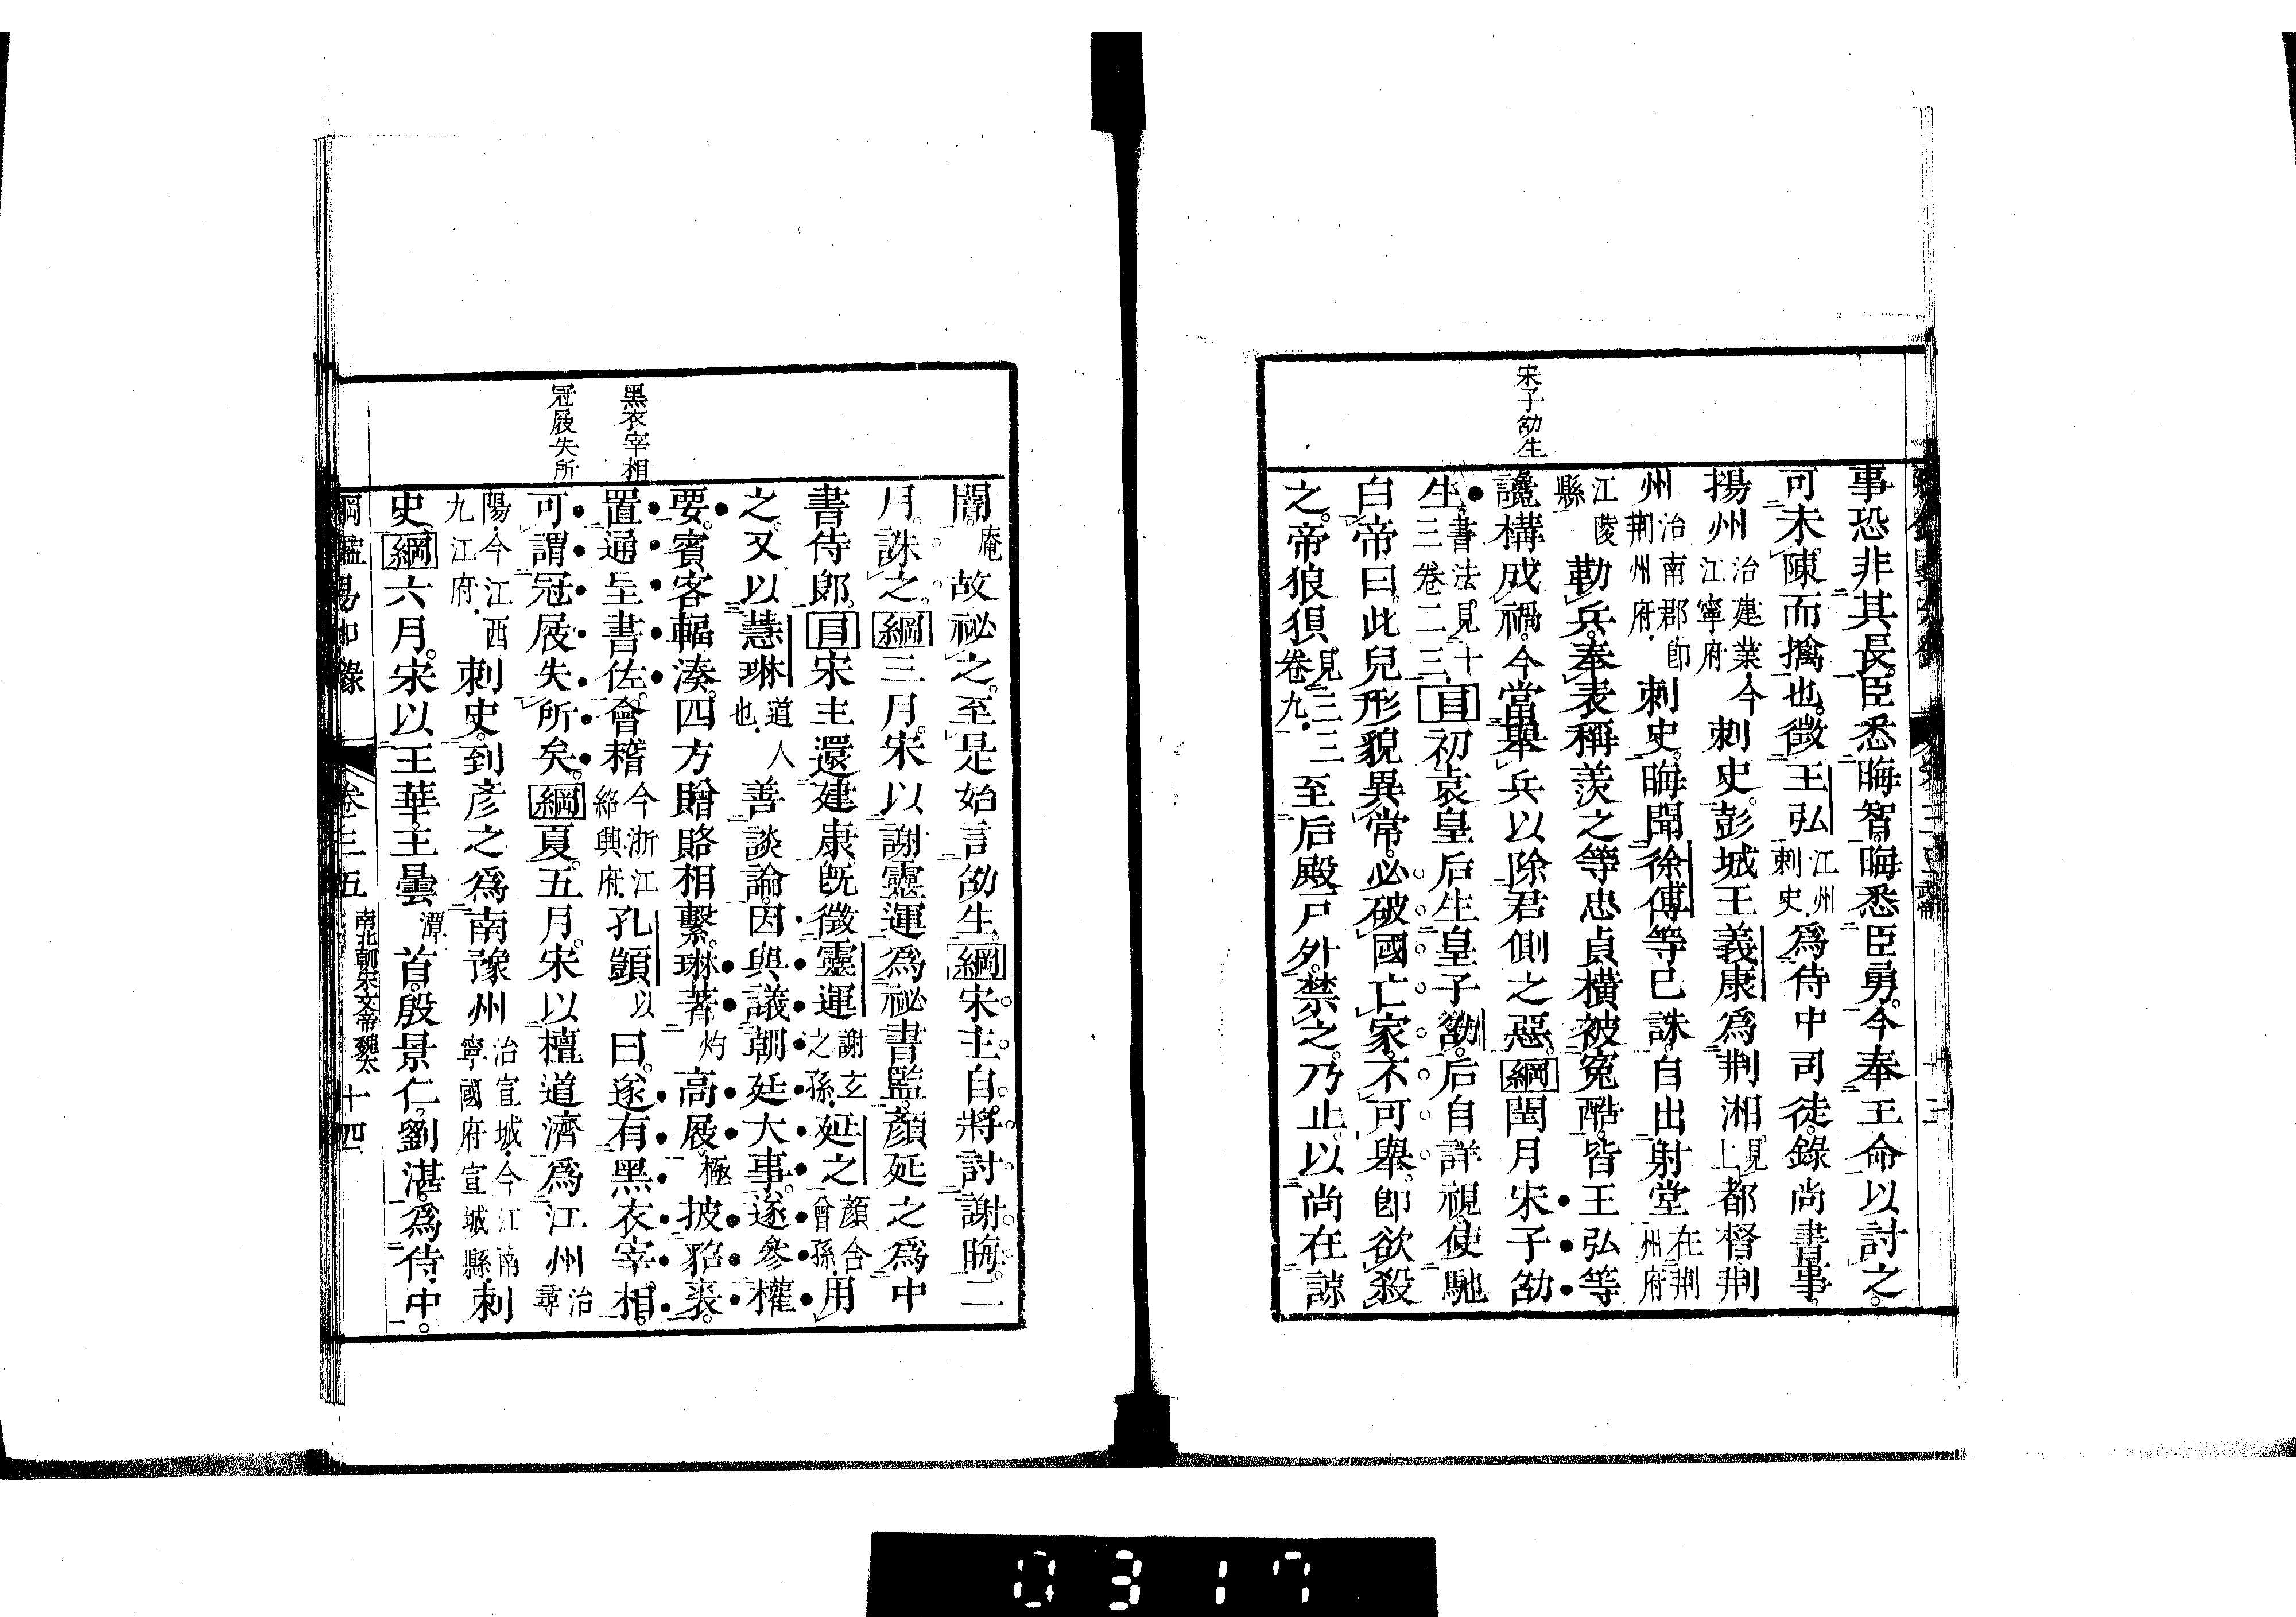 宋子劭生
事恐非其長臣悉晦智晦悉臣勇今奉王命以討之
可未陳而擒也徵王弘江州刺史爲侍中司徒錄尚書事
揚州治建業今江寧府刺史彭城王義康爲荆湘見上都督荆
州治南郡卽荆州府刺史晦聞徐傅等已誅自出射堂在荆州府
江陵縣勒兵奉表稱羨之等忠貞橫被冤酷皆王弘等
讒構成禍今當舉兵以除君側之惡綱閏月宋子劭
生書法見十三卷二三目初袁皇后生皇子劭后自詳視使馳
白帝曰此兒形貌異常必破國亡家不可舉卽欲殺
之帝狼狽見三三卷九至后殿戸外禁之乃止以尚在諒
黑衣宰相
冠屐失所
闇庵故祕之至是始言劭生綱宋主自將討謝晦二
月誅之綱三月宋以謝靈運爲祕書監顏延之爲中
書侍郎目宋主還建康旣徵靈運謝玄之孫延之顏含曾孫用
之又以慧琳道人也善談論因與議朝廷大事遂參權
要賓客輻湊四方贈賂相繫琳著灼高屐極披貂裘
置通呈書佐會稽今浙江紹興府孔顗以曰遂有黑衣宰相
可謂冠屐失所矣綱夏五月宋以檀道濟爲江州治尋
陽今江西九江府刺史到彥之爲南豫州治宣城今江南寧國府宣城縣刺
史綱六月宋以王華王曇潭首殷景仁劉湛爲侍中
綱鑑易知錄 卷三五 南北朝宋文帝魏太 十四